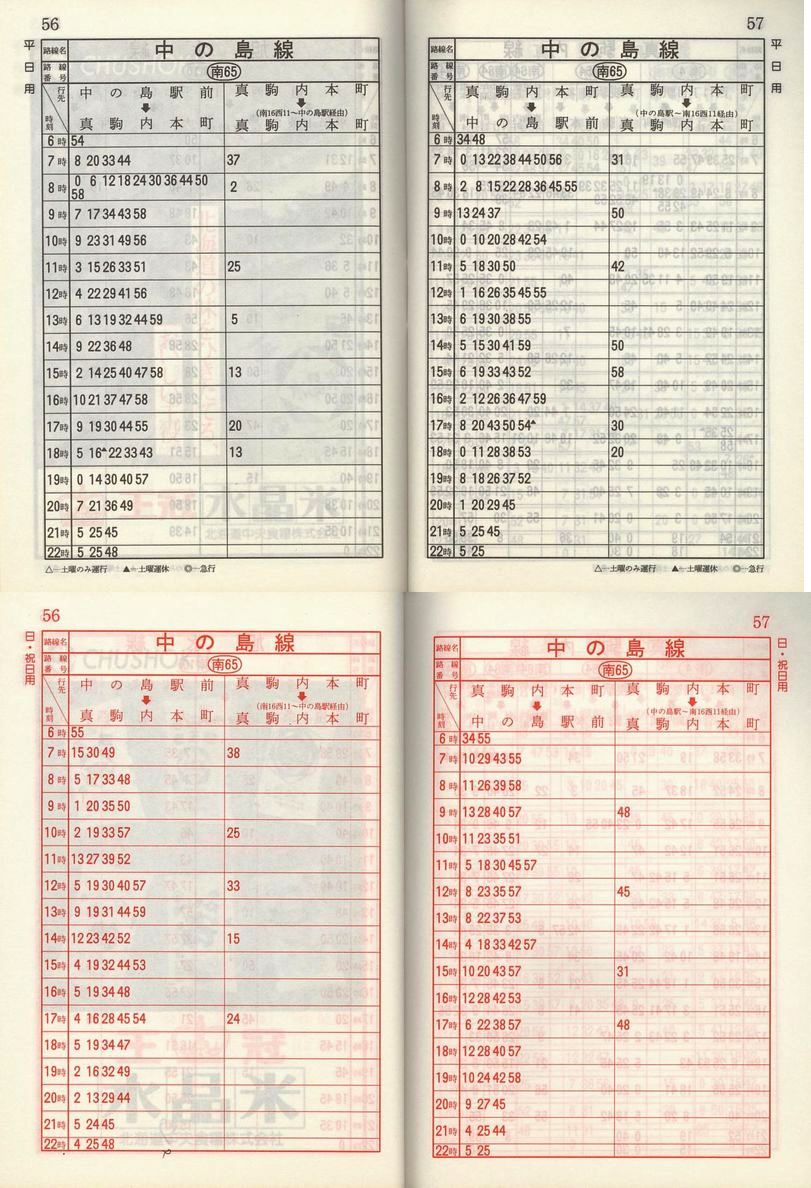 56
平日用
路線名 中の島線
路線番号 南65
行先 時刻
中の島駅前 真駒内本町
⬇ ⬇
(南16西11〜中の島駅経由)
真駒内本町 真駒内本町
6時 54
7時 8 20 33 44 37
8時 0 6 12 18 24 30 36 44 50 2
58
9時 7 17 34 43 58
10時 9 23 31 49 56
11時 3 15 26 33 51 25
12時 4 22 29 41 56
13時 6 13 19 32 44 59 5
14時 9 22 36 48
15時 2 14 25 40 47 58 13
16時 10 21 37 47 58
17時 9 19 30 44 55 20
18時 5 16▲ 22 33 43 13
19時 0 14 30 40 57
20時 7 21 36 49
21時 5 25 45
22時 5 25 48
△…土曜のみ運行 ▲…土曜運休 ◎…急行
57
平日用
路線名 中の島線
路線番号 南65
行先 時刻
真駒内本町 真駒内本町
⬇ ⬇
(中の島駅〜南16西11経由)
中の島駅前 真駒内本町
6時 34 48
7時 0 13 22 38 44 50 56 31
8時 2 8 15 22 28 36 45 55
9時 13 24 37 50
10時 0 10 20 28 42 54
11時 5 18 30 50 42
12時 1 16 26 35 45 55
13時 6 19 30 38 55
14時 5 15 30 41 59 50
15時 6 19 33 43 52 58
16時 2 12 26 36 47 59
17時 8 20 43 50 54▲ 30
18時 0 11 28 38 53 20
19時 8 18 26 37 52
20時 1 20 29 45
21時 5 25 45
22時 5 25
△…土曜のみ運行 ▲…土曜運休 ◎…急行
56
日・祝日用
路線名 中の島線
路線番号 南65
行先 時刻
中の島駅前 真駒内本町
⬇ ⬇
(南16西11〜中の島駅経由)
真駒内本町 真駒内本町
6時 55
7時 15 30 49 38
8時 5 17 33 48
9時 1 20 35 50
10時 2 19 33 57 25
11時 13 27 39 52
12時 5 19 30 40 57 33
13時 9 19 31 44 59
14時 12 23 42 52 15
15時 4 19 32 44 53
16時 5 19 34 48
17時 4 16 28 45 54 24
18時 5 19 34 47
19時 2 16 32 49
20時 2 13 29 44
21時 5 24 45
22時 4 25 48
57
日・祝日用
路線名 中の島線
路線番号 南65
行先 時刻
真駒内本町 真駒内本町
⬇ ⬇
(中の島駅〜南16西11経由)
中の島駅前 真駒内本町
6時 34 55
7時 10 29 43 55
8時 11 26 39 58
9時 13 28 40 57 48
10時 11 23 35 51
11時 5 18 30 45 57
12時 8 23 35 57 45
13時 8 22 37 53
14時 4 18 33 42 57
15時 10 20 43 57 31
16時 12 28 42 53
17時 6 22 38 57 48
18時 12 28 40 57
19時 10 24 42 58
20時 9 27 45
21時 4 25 44
22時 5 25